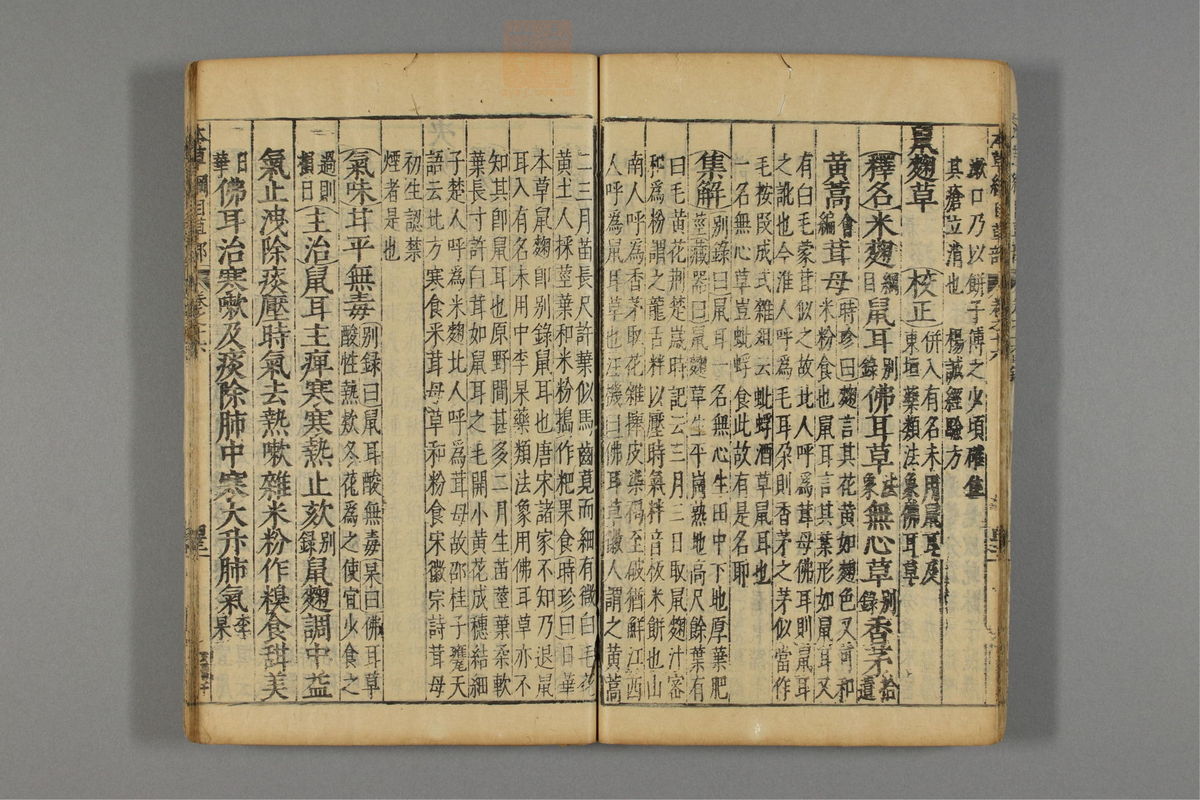 本草綱目草部 卷之十六
漱口乃以餅子傅之少頃
其瘡立消也 楊誠經驗方
鼠麴草 校正 併入有名未用鼠耳及
東垣藥類法象佛耳草
釋名米麴綱目鼠耳別錄佛耳草法象無心草別錄香茅拾遺
黃蒿會編茸母 時珍曰麴言其花黃如麴色又可和
米粉食也鼠耳言其葉形如鼠耳又
有白毛蒙茸似之故北人呼爲茸母佛耳則鼠耳
之訛也今淮人呼爲毛耳朶則香茅之茅似當作
毛按段成式雜俎云蚍蜉酒草鼠耳也
一名無心草豈蚍蜉食此故有是名耶
集解 別錄曰鼠耳一名無心生田中下地厚葉肥
莖藏器曰鼠麴草生平崗熟地高尺餘葉有
白毛黃花荊楚歲時記云三月三日取鼠麴汁蜜
和爲粉謂之龍舌䉽以壓時氣䉽音板米餅也山
南人呼爲香茅取花雜櫸皮染褐至破猶鮮江西
人呼爲鼠耳草也汪機曰佛耳草徽人謂之黃蒿
二三月苗長尺許葉似馬齒莧而細有微白毛花
黃土人採莖葉和米粉搗作粑果食時珍曰日華
本草鼠麴卽別錄鼠耳也唐宋諸家不知乃退鼠
耳入有名未用中李杲藥類法象用佛耳草亦不
知其卽鼠耳也原野間甚多二月生苗莖葉柔軟
葉長寸許白茸如鼠耳之毛開小黃花成穗結細
子楚人呼爲米麴北人呼爲茸母故邵桂子甕天
語云北方寒食采茸母草和粉食宋徽宗詩茸母
初生認禁
煙者是也
氣味甘平無毒 別錄曰鼠耳酸無毒杲曰佛耳草
酸性熱欵冬花爲之使宜少食之
過則
損目 主治鼠耳主痺寒寒熱止欬別錄鼠麴調中益
氣止洩除痰壓時氣去熱嗽雜米粉作糗食甜美
日華佛耳治寒嗽及痰除肺中寒大升肺氣李杲
本草綱目草部 卷之十六